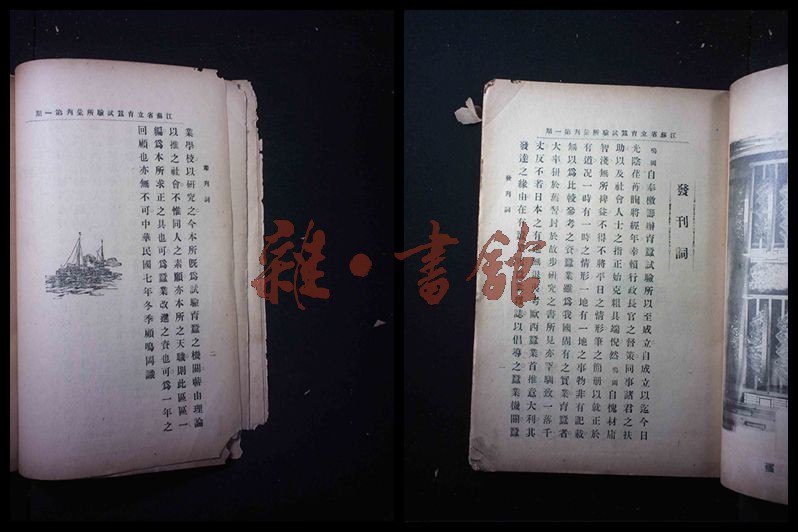 江蘇省立育蠶試驗所彙刊第一期
發刊詞
鳴岡自奉檄籌辦育蠶試驗所以至成立自成立以迄今日
光陰荏苒眴將經年幸賴行政長官之督策同事諸君之扶
助以及社會人士之指正始克粗具端倪然鳴岡自愧材庸
智淺無所裨益不得不將平日之情形筆之簡册以就正於
有道况一時有一時之情形一地有一地之事物非有記載
無以爲比較參考之資蠶業雖爲我國固有之實業育蠶者
大率狃於舊習封於故步研究之書所見亦罕馴致一落千
丈反不若日本之有進無退考歐西蠶業首推意大利其
發達之緣由在有誌以倡導之蠶業機關蠶
發刊詞
一
江蘇省立育蠶試驗所彙刊第一期
發刊詞
二
業學校以研究之今本所旣爲試驗育蠶之機關藉由理論
以推之社會不惟同人之素願亦本所之天職則此區區一
編爲本所求正之具也可爲蠶業改進之資也可爲一年之
回顧也亦無不可中華民國七年冬季顧鳴岡識
雜·書館